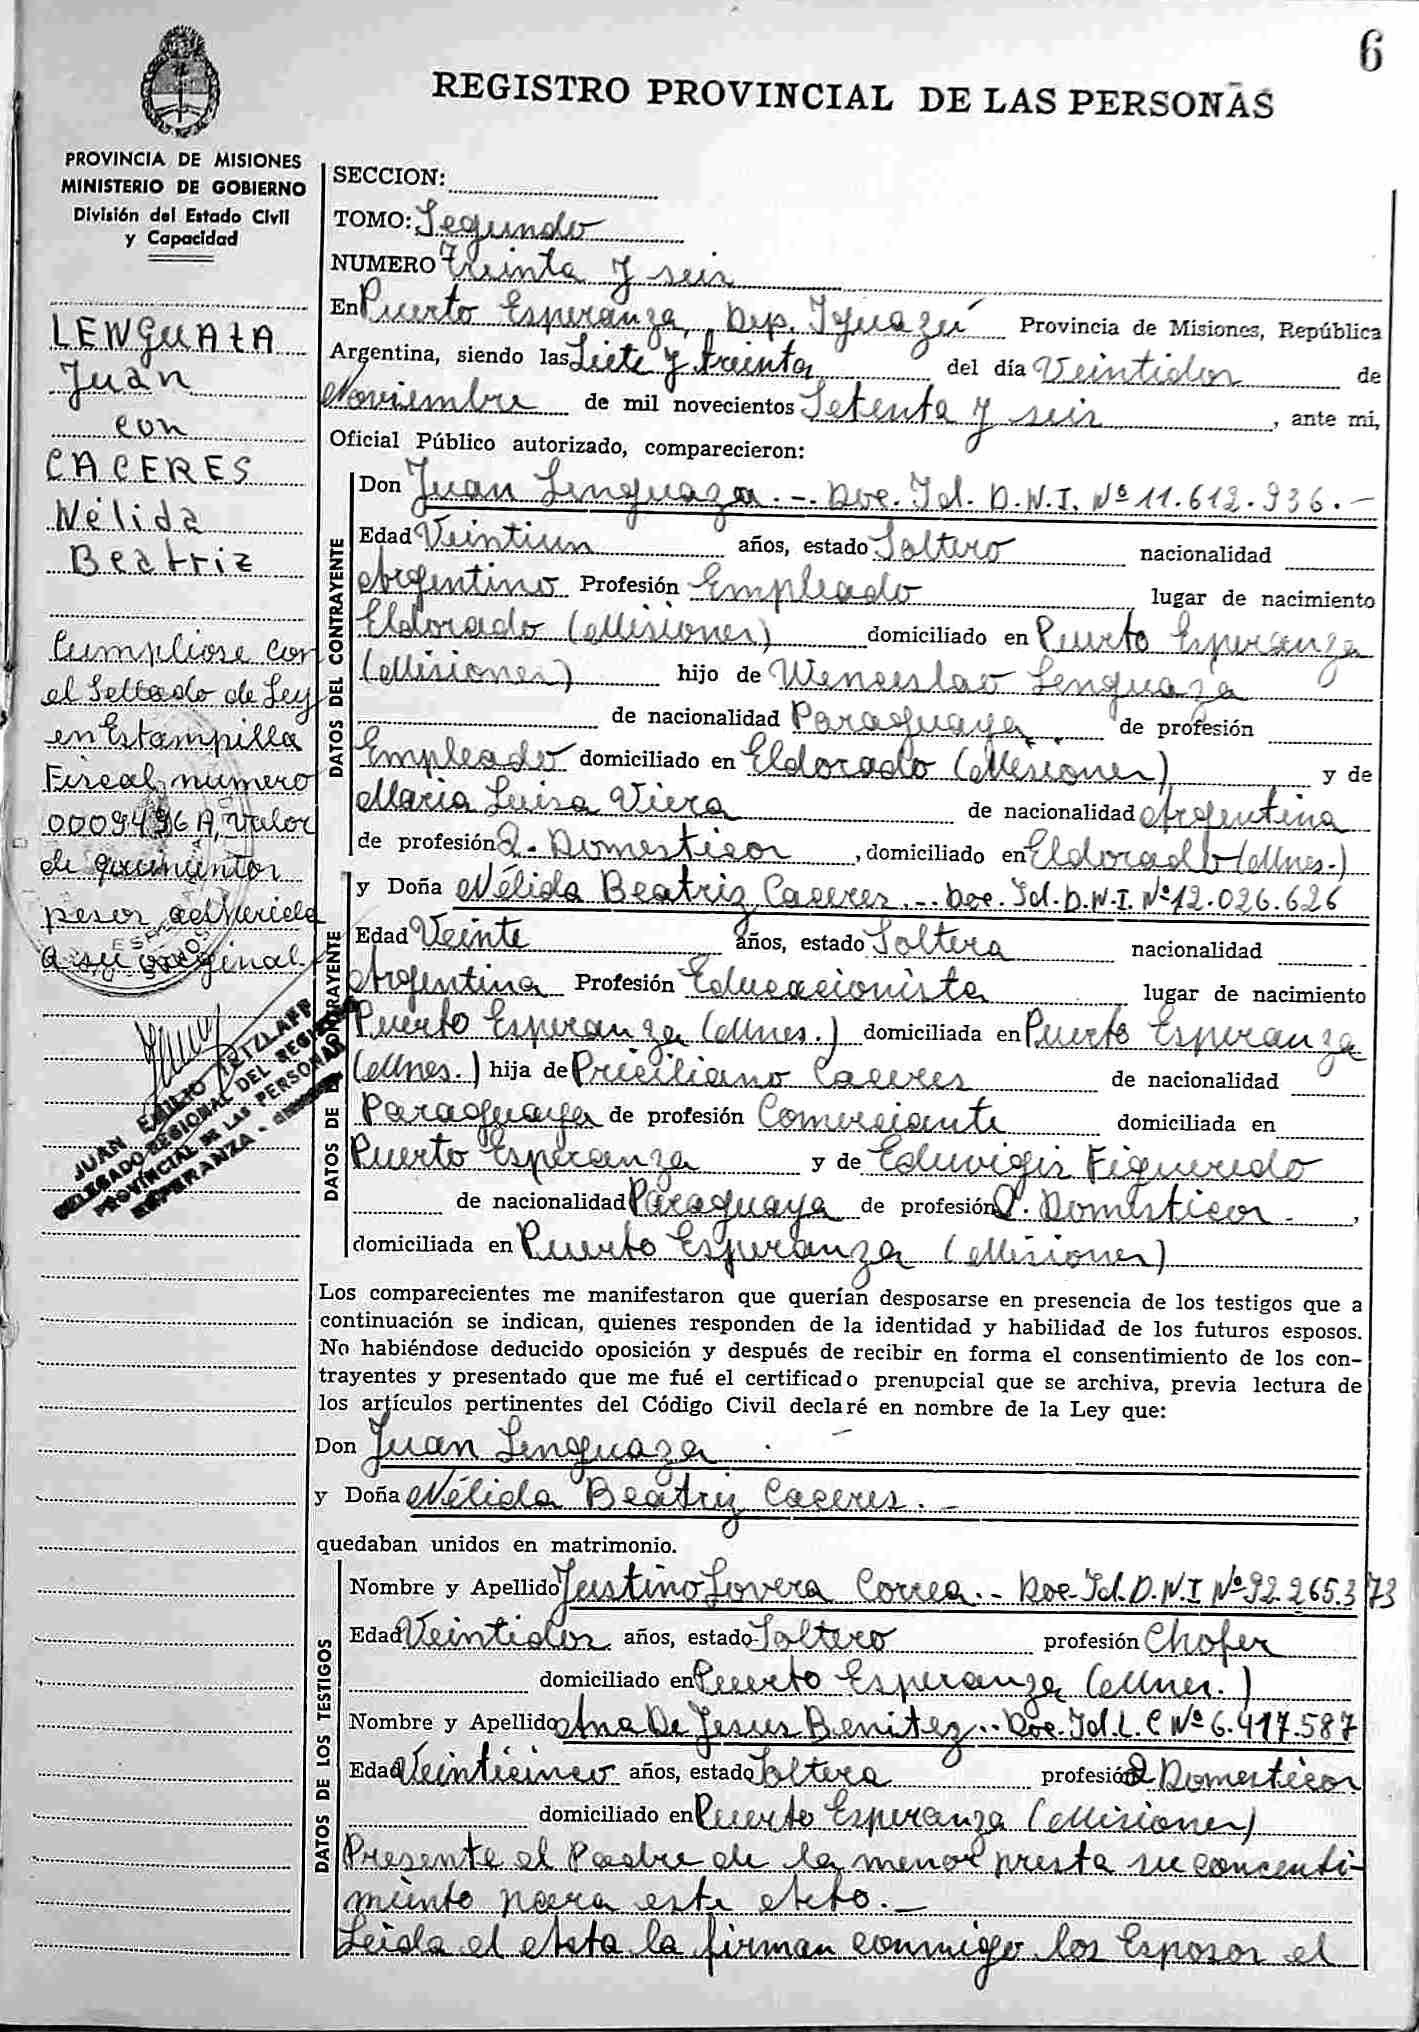 6
REGISTRO PROVINCIAL DE LAS PERSONAS
PROVINCIA DE MISIONES
MINISTERIO DE GOBIERNO
División del Estado Civil
y Capacidad
LENGUAZA
Juan
con
CACERES
Nélida
Beatriz
Cumpliose con
el Sellado de Ley
en Estampilla
Fiscal numero
0009496 A, valor
de quinientos
pesos adherida
a su original.
JUAN EMILIO
DELEGADO REGIONAL DEL REGISTRO
PROVINCIAL DE LAS PERSONAS
ESPERANZA -
SECCION:
TOMO: Segundo
NUMERO Treinta y seis
En Puerto Esperanza, Dep. Iguazú Provincia de Misiones, República
Argentina, siendo las Siete y treinta del día Veintidos de
Noviembre de mil novecientos Setenta y seis, ante mi,
Oficial Público autorizado, comparecieron:
DATOS DEL CONTRAYENTE
Don Juan Lenguaza.-. Doc. Id. D.N.I. Nº 11.612.936.-
Edad Veintiun años, estado Soltero nacionalidad
Argentino Profesión Empleado lugar de nacimiento
Eldorado (Misiones) domiciliado en Puerto Esperanza
(Misiones) hijo de Wenceslao Lenguaza
de nacionalidad Paraguaya de profesión
Empleado domiciliado en Eldorado (Misiones) y de
Maria Luisa Viera de nacionalidad Argentina
de profesión Q. Domesticos, domiciliado en Eldorado (Mnes.)
DATOS DE LA CONTRAYENTE
y Doña Nélida Beatriz Caceres.-. Doc. Id. D.N.I. Nº 12.026.626
Edad Veinte años, estado Soltera nacionalidad
Argentina Profesión Educacionista lugar de nacimiento
Puerto Esperanza (Mnes.) domiciliada en Puerto Esperanza
(Mnes.) hija de Priciliano Caceres de nacionalidad
Paraguaya de profesión Comerciante domiciliada en
Puerto Esperanza y de Eduvigis Figueredo
de nacionalidad Paraguaya de profesión Q. Domesticos.,
domiciliada en Puerto Esperanza (Misiones)
Los comparecientes me manifestaron que querían desposarse en presencia de los testigos que a
continuación se indican, quienes responden de la identidad y habilidad de los futuros esposos.
No habiéndose deducido oposición y después de recibir en forma el consentimiento de los con-
trayentes y presentado que me fué el certificado prenupcial que se archiva, previa lectura de
los artículos pertinentes del Código Civil declaré en nombre de la Ley que:
Don Juan Lenguaza
y Doña Nélida Beatriz Caceres.-
quedaban unidos en matrimonio.
DATOS DE LOS TESTIGOS
Nombre y Apellido Justino Lovera Correa.- Doc. Id. D.N.I Nº 92.265.373
Edad Veintidos años, estado Soltero profesión Chofer
domiciliado en Puerto Esperanza (Mnes.)
Nombre y Apellido Ana De Jesus Benitez.. Doc. Id. L.C Nº 6.417.587
Edad Veinticinco años, estado Soltera profesión Q Domesticos
domiciliado en Puerto Esperanza (Misiones)
Presente el Padre de la menor presta su concenti-
miento para este acto.-
Leida el acta la firman conmigo los Esposos el